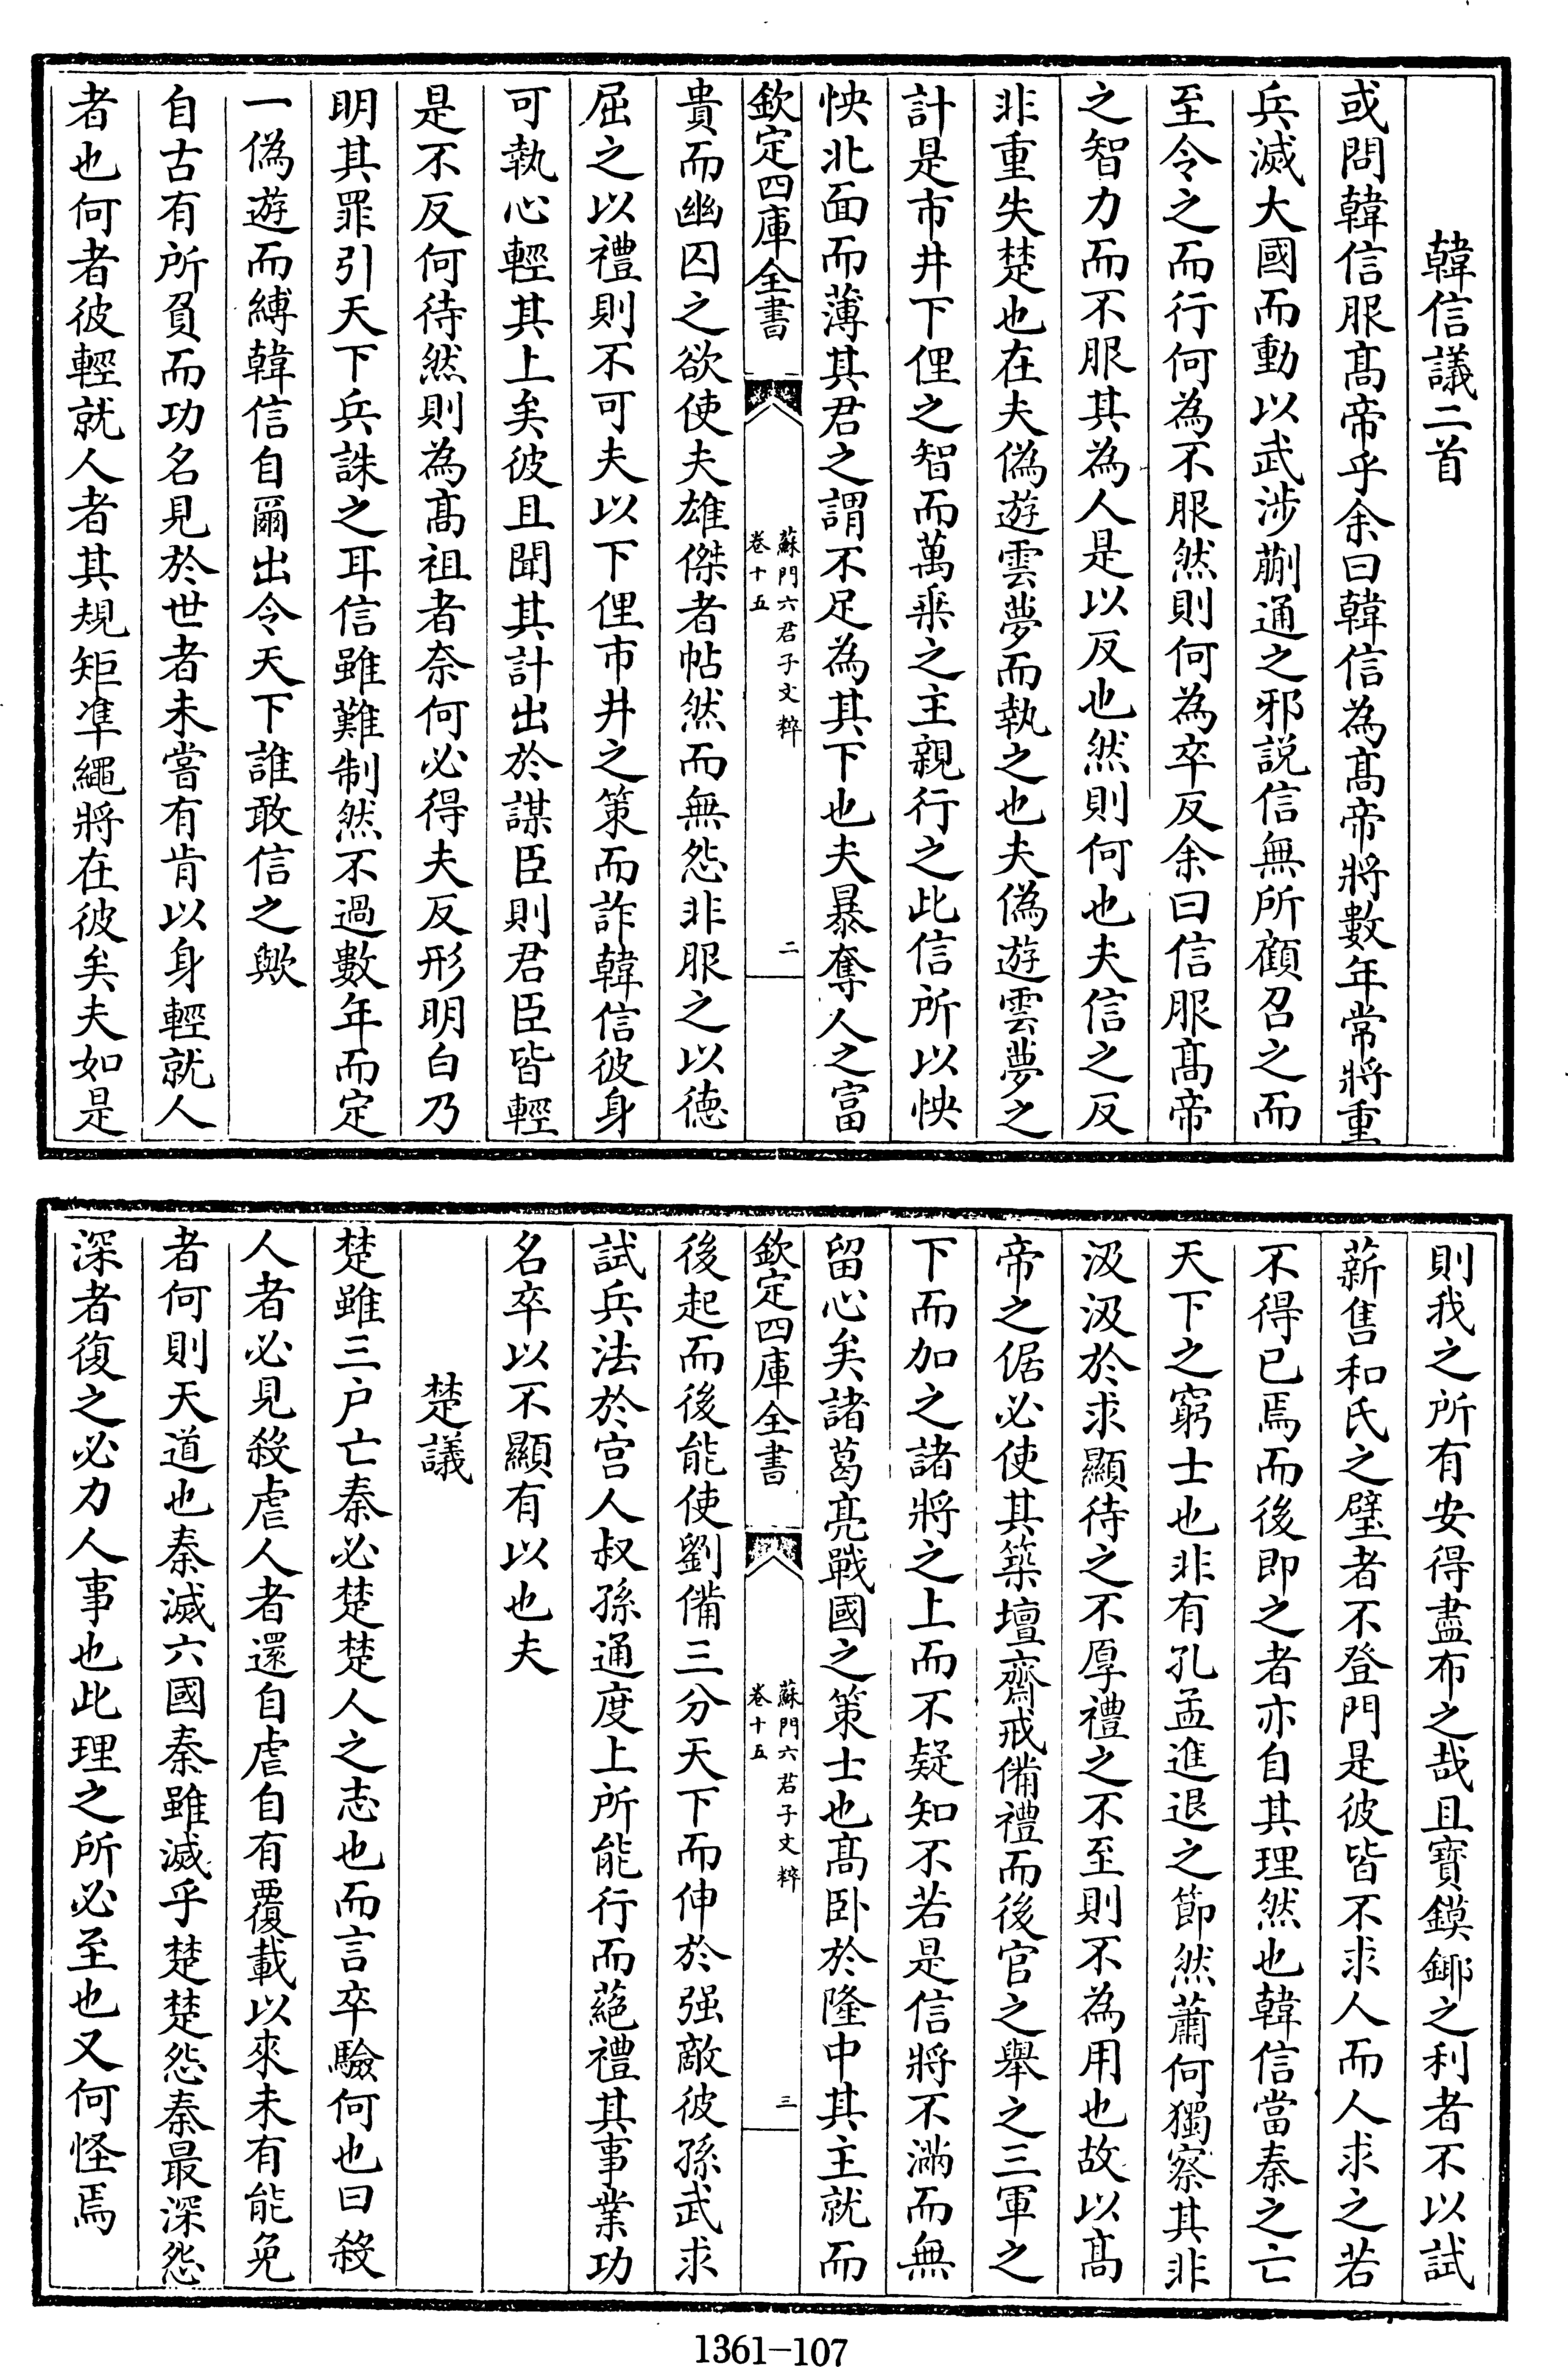 韓信議二首
或問韓信服髙帝乎余曰韓信為髙帝將數年常將重
兵滅大國而動以武涉蒯通之邪説信無所顧召之而
至令之而行何為不服然則何為卒反余曰信服髙帝
之智力而不服其為人是以反也然則何也夫信之反
非重失楚也在夫偽遊雲夢而執之也夫偽遊雲夢之
計是市井下俚之智而萬乗之主親行之此信所以怏
怏北面而薄其君之謂不足為其下也夫暴奪人之富
欽定四庫全書
蘇門六君子文粹
卷十五
二
貴而幽囚之欲使夫雄傑者帖然而無怨非服之以德
屈之以禮則不可夫以下俚市井之策而詐韓信彼身
可執心輕其上矣彼且聞其計出於謀臣則君臣皆輕
是不反何待然則為髙祖者奈何必得夫反形明白乃
明其罪引天下兵誅之耳信雖難制然不過數年而定
一偽遊而縛韓信自爾出令天下誰敢信之歟
自古有所負而功名見於世者未嘗有肯以身輕就人
者也何者彼輕就人者其規矩準繩將在彼矣夫如是
則我之所有安得盡布之哉且寳鏌鎁之利者不以試
薪售和氏之璧者不登門是彼皆不求人而人求之若
不得已焉而後即之者亦自其理然也韓信當秦之亡
天下之窮士也非有孔孟進退之節然蕭何獨察其非
汲汲於求顯待之不厚禮之不至則不為用也故以髙
帝之倨必使其築壇齋戒備禮而後官之舉之三軍之
下而加之諸將之上而不疑知不若是信將不滿而無
留心矣諸葛亮戰國之策士也髙卧於隆中其主就而
欽定四庫全書
蘇門六君子文粹
卷十五
三
後起而後能使劉備三分天下而伸於强敵彼孫武求
試兵法於宫人叔孫通度上所能行而蕝禮其事業功
名卒以不顯有以也夫
楚議
楚雖三户亡秦必楚楚人之志也而言卒驗何也曰殺
人者必見殺虐人者還自虐自有覆載以來未有能免
者何則天道也秦滅六國秦雖滅乎楚楚怨秦最深怨
深者復之必力人事也此理之所必至也又何怪焉
1361-107